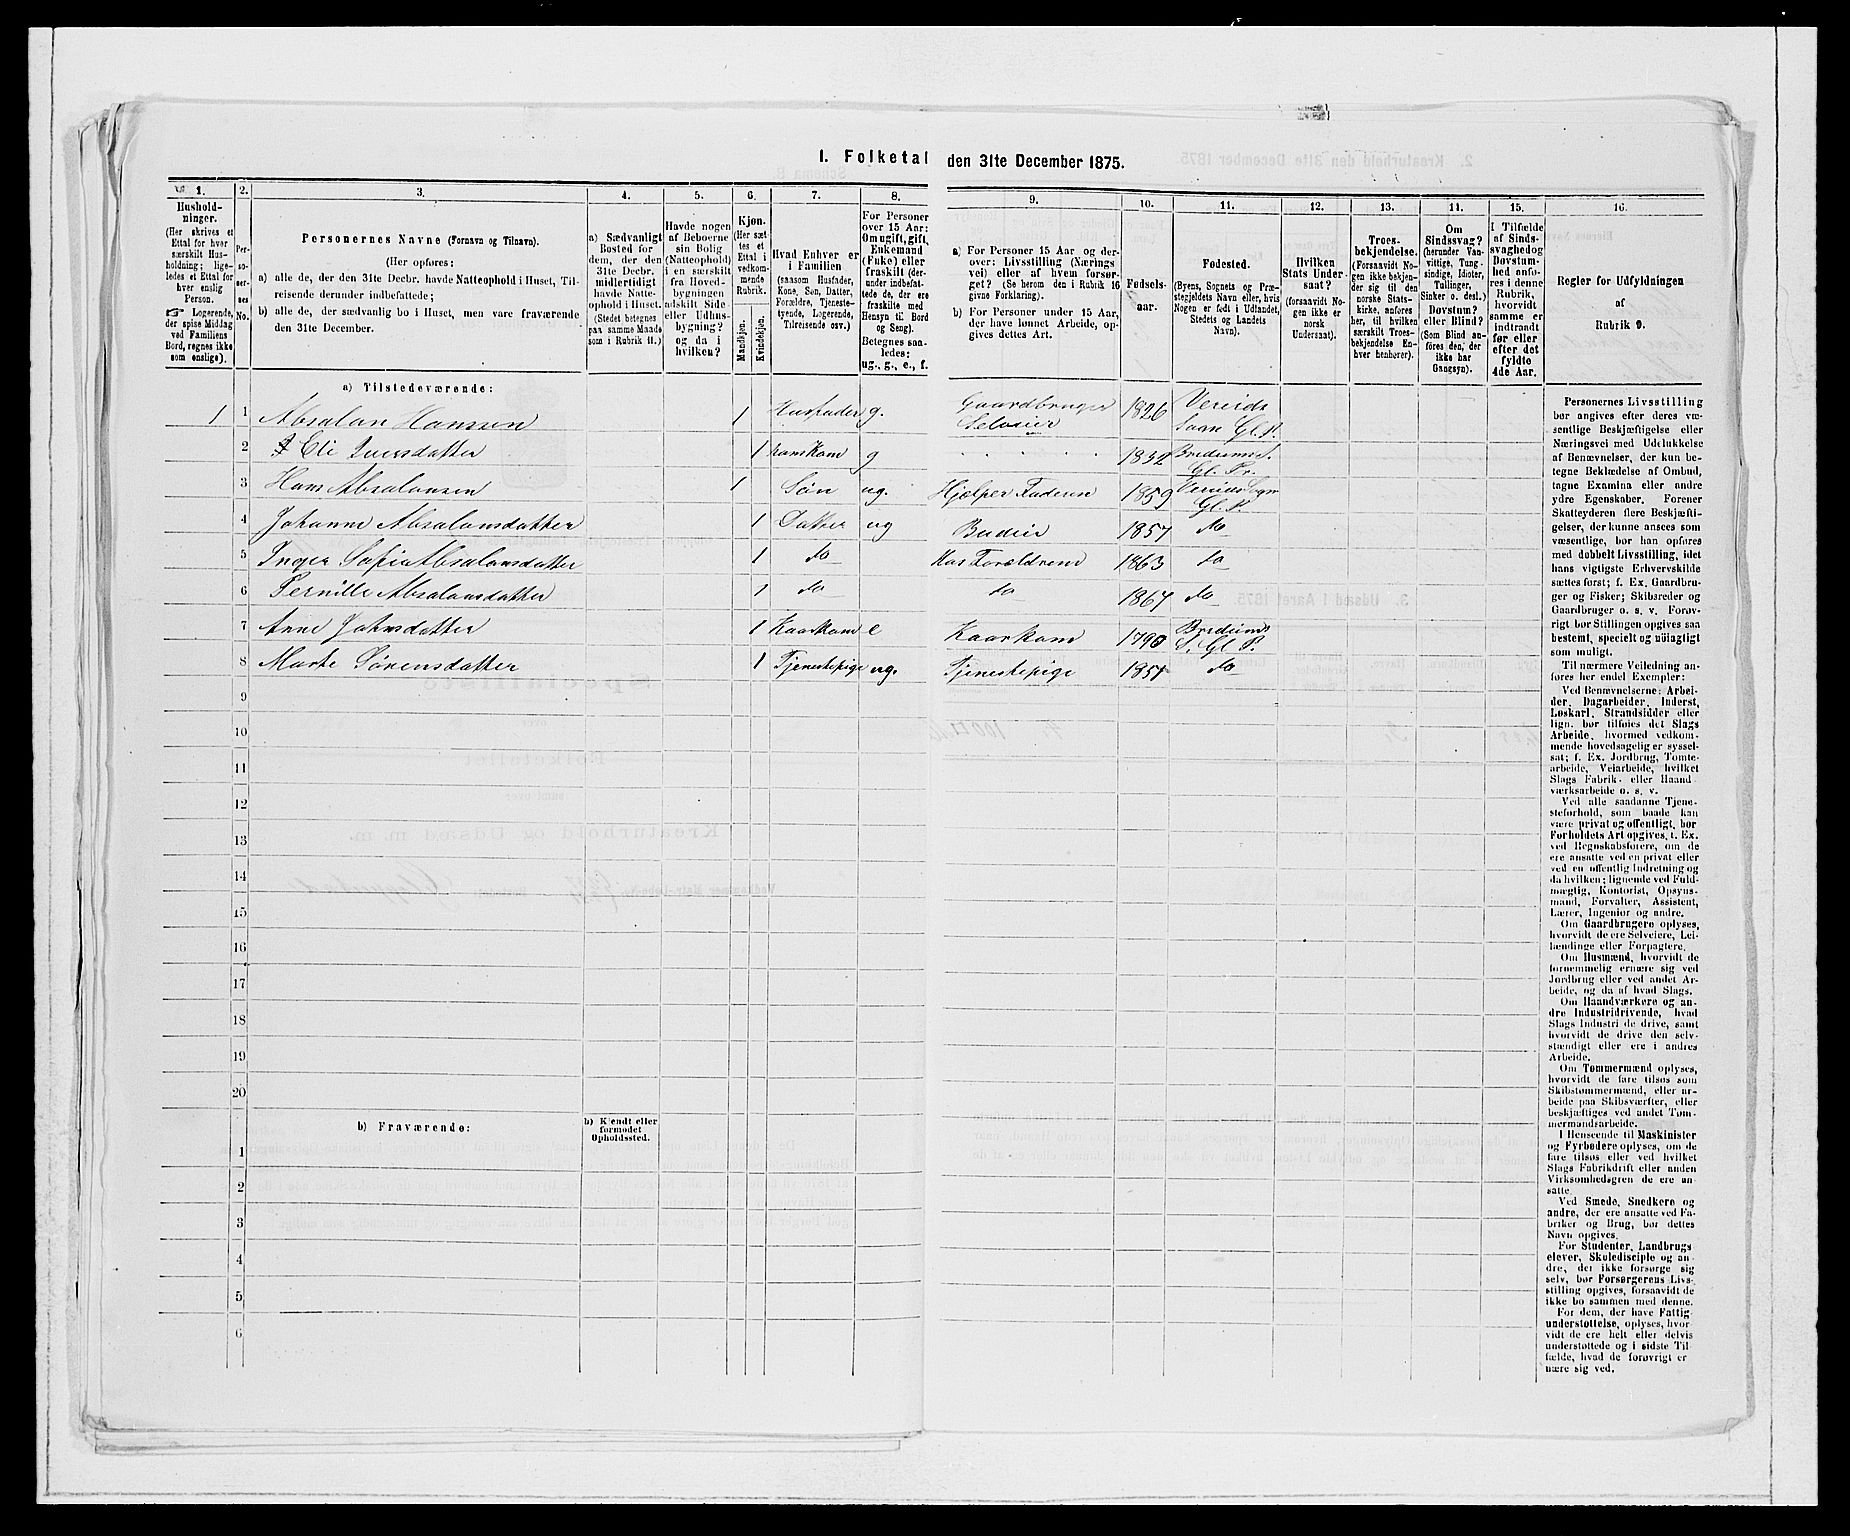 I. Folketal den 31te December 1875.
1.
Hushold-
ninger.
(Her skrives et
Ettal for hver
særskilt Hus-
holdning; lige-
ledes et Ettal for
hver enslig
Person.
Logerende,
der spise Middag
ved Familiens
Bord, regnes ikke
som enslige).
2.
Per-
so-
ner-
nes
No.
3.
Personernes Navne (Fornavn og Tilnavn).
(Her opføres:
a) alle de, der den 31te Decbr. havde Natteophold i Huset, Til-
reisende derunder indbefattede;
b) alle de, der sædvanlig bo i Huset, men vare fraværende
den 31te December.
4.
a) Sædvanligt
Bosted for
dem, der den
31te Decbr.
midlertidigt
havde Natte-
ophold i Huset.
(Stedet betegnes
paa samme Maade
som i Rubrik 11.)
5.
Havde nogen
af Beboerne
sin Bolig
(Natteophold)
i en særskilt
fra Hoved-
bygningen
adskilt Side
eller Udhus-
bygning?
og da i
hvilken?
6.
Kjøn.
(Her sæt-
tes et
Ettal i
vedkom-
mende
Rubrik.
Mandkjøn.
Kvindekjøn.
7.
Hvad Enhver er
i Familien
(saasom Husfader,
Kone, Søn, Datter,
Forældre, Tjeneste-
tyende, Logerende,
Tilreisende osv.)
8.
For Personer
over 15 Aar:
Om ugift, gift,
Enkemand
(Enke) eller
fraskilt (der-
under indbefat-
tede de, der ere
fraskilte med
Hensyn til Bord
og Seng).
Betegnes saa-
ledes:
ug., g., e., f.
9.
a) For Personer 15 Aar og der-
over: Livsstilling (Nærings
vei) eller af hvem forsør-
get? (Se herom den i Rubrik 16
givne Forklaring).
b) For Personer under 15 Aar,
der have lønnet Arbeide, op-
gives dettes Art.
10.
Fødsels-
aar.
11.
Fødested.
(Byens, Sognets og Præ-
stegjeldets Navn eller, hvis
Nogen er født i Udlandet,
Stedets og Landets
Navn).
12.
Hvilken
Stats Under-
saat?
(forsaavidt No-
gen ikke er
norsk
Undersaat).
13.
Troes-
bekjendelse.
(Forsaavidt No-
gen ikke bekjen-
der sig til den
norske Stats-
kirke, anføres
her, til hvilken
særskilt Troes-
bekjendelse En-
hver henhører).
14.
Om
Sindssvag?
(herunder Van-
vittige, Tung-
sindige, Idioter,
Tullinger,
Sinker o. desl.)
Døvstum?
eller Blind?
(Som Blind an-
føres den, der
ikke har
Gangsyn).
15.
I Tilfælde
af Sinds-
svaghed og
Døvstum-
hed anfø-
res i denne
Rubrik,
hvorvidt
samme er
indtraadt
før eller
efter det
fyldte
4de Aar.
16.
Regler for Udfyldningen
af
Rubrik 9.
a) Tilstedeværende:
1 1 Absalon Hanssen 1 Husfader g. Gaardbruger Selveier 1826 Vereids Sogn Gl. P.
2 Eli Iversdatter 1 hans Kone g 1832 Bredums S. Gl. Pr.
3 Hans Absalonsen 1 Søn ug. Hjælper Faderen 1859 Vereids Sogn Gl. P.
4 Johanne Absalonsdatter 1 Datter ug Budeie 1857 do
5 Inger Sofie Absalonsdatter 1 do Hos Forældrene 1863 do
6 Pernille Absalonsdatter 1 do do 1867 do
7 Anne Johnsdatter 1 Kaarkone e Kaarkone 1790 Bredums S. Gl. P.
8 Marte Sørensdatter 1 Tjenestepige ug. Tjenestepige 1851 do
9
10
11
12
13
14
15
16
17
18
19
20
b) Fraværende:
b) Kjendt eller
formodet
Opholdssted.
1
2
3
4
5
6
Personernes Livsstilling
bør angives efter deres væ-
sentlige Beskjæftigelse eller
Næringsvei med Udelukkelse
af Benævnelser, der kun be-
tegne Beklædelse af Ombud,
tagne Examina eller andre
ydre Egenskaber. Forener
Skatteyderen flere Beskjæfti-
gelser, der kunne ansees som
væsentlige, bør han opføres
med dobbelt Livsstilling, idet
hans vigtigste Erhvervskilde
sættes først; f. Ex. Gaardbru-
ger og Fisker; Skibsreder og
Gaardbruger o. s. v. Forøv-
rigt bør Stillingen opgives saa
bestemt, specielt og nøiagtigt
som muligt.
Til nærmere Veiledning an-
føres her endel Exempler:
Ved Benævnelserne: Arbei-
der, Dagarbeider, Inderst,
Løskarl, Strandsidder eller
lign. bør tilføies det Slags
Arbeide, hvormed vedkom-
mende hovedsagelig er syssel-
sat; f. Ex. Jordbrug, Tomte-
arbeide, Veiarbeide, hvilket
Slags Fabrik- eller Haand-
værksarbeide o. s. v.
Ved alle saadanne Tjene-
steforhold, som baade kan
være privat og offentligt, bør
Forholdets Art opgives, t. Ex.
ved Regnskabsførere, om de
ere ansatte ved en privat eller
ved en offentlig Indretning og
da hvilken; lignende ved Fuld-
mægtig, Kontorist, Opsyns-
mand, Forvalter, Assistent,
Lærer, Ingeniør og andre.
Om Gaardbrugere oplyses,
hvorvidt de ere Selveiere, Lei-
lændinge eller Forpagtere.
Om Husmænd, hvorvidt de
fornemmelig ernære sig ved
Jordbrug eller ved andet Ar-
beide, og da af hvad Slags.
Om Haandværkere og an-
dre Industridrivende, hvad
Slags Industri de drive, samt
hvorvidt de drive den selv-
stændigt eller ere i andres
Arbeide.
Om Tømmermænd oplyses,
hvorvidt de fare tilsøs som
Skibstømmermænd, eller ar-
beide paa Skibsværfter, eller
beskjæftiges ved andet Tøm-
mermandsarbeide.
I Henseende til Maskinister
og Fyrbødere oplyses, om de
fare tilsøs eller ved hvilket
Slags Fabrikdrift eller anden
Virksomhedsgren de ere an-
satte.
Ved Smede, Snedkere og
andre, der ere ansatte ved Fa-
briker og Brug, bør dettes
Navn opgives.
For Studenter, Landbrugs
elever, Skoledisciple og an-
dre, der ikke forsørge sig
selv, bør Forsørgerens Livs-
stilling opgives, forsaavidt de
ikke bo sammen med denne.
For dem, der have Fattig-
understøttelse, oplyses, hvor-
vidt de ere helt eller delvis
understøttede og i sidste Til-
fælde, hvad de forøvrigt er
nære sig ved.